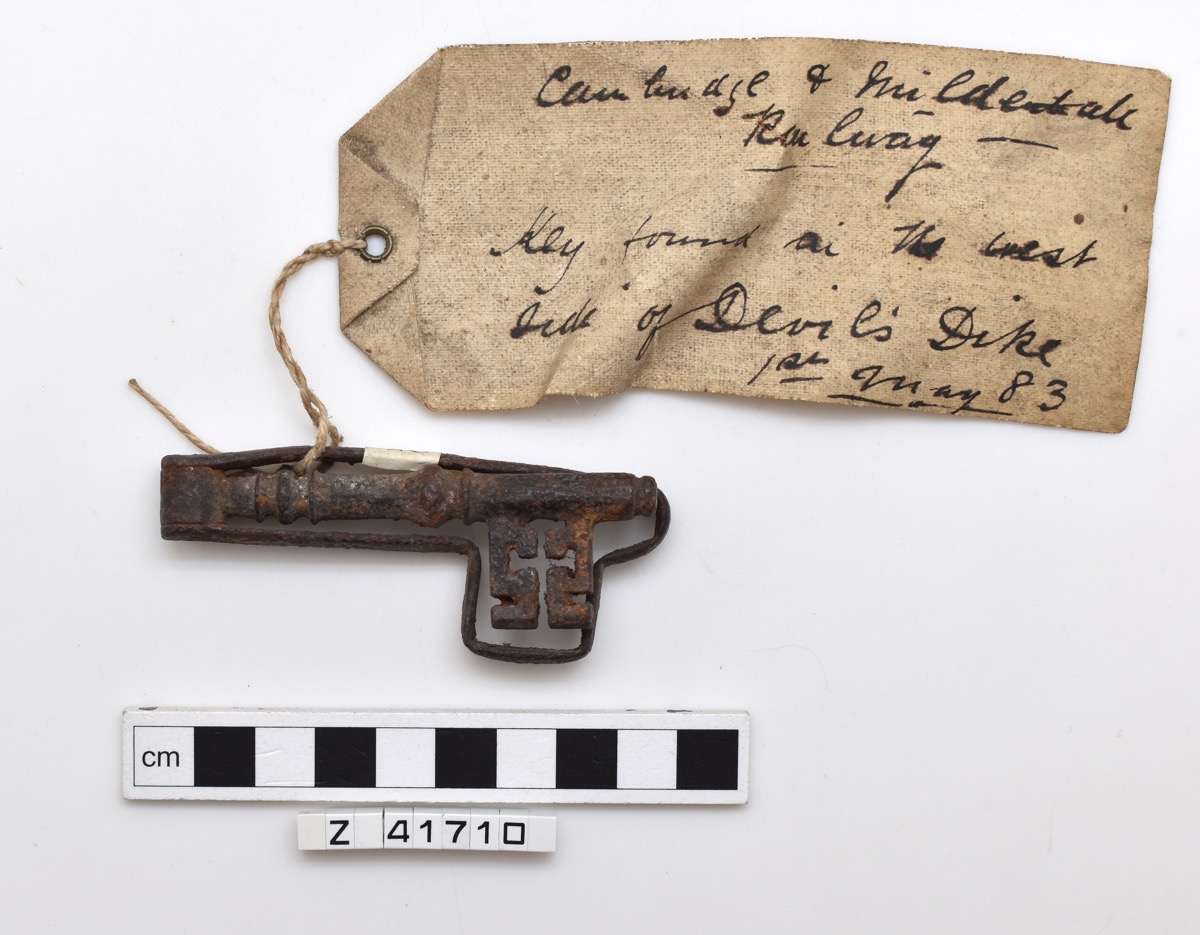 Cambridge & Mildenhall
Railway —
Key found in the west
side of Devil's Dike
1st May 83
cm
Z 41710